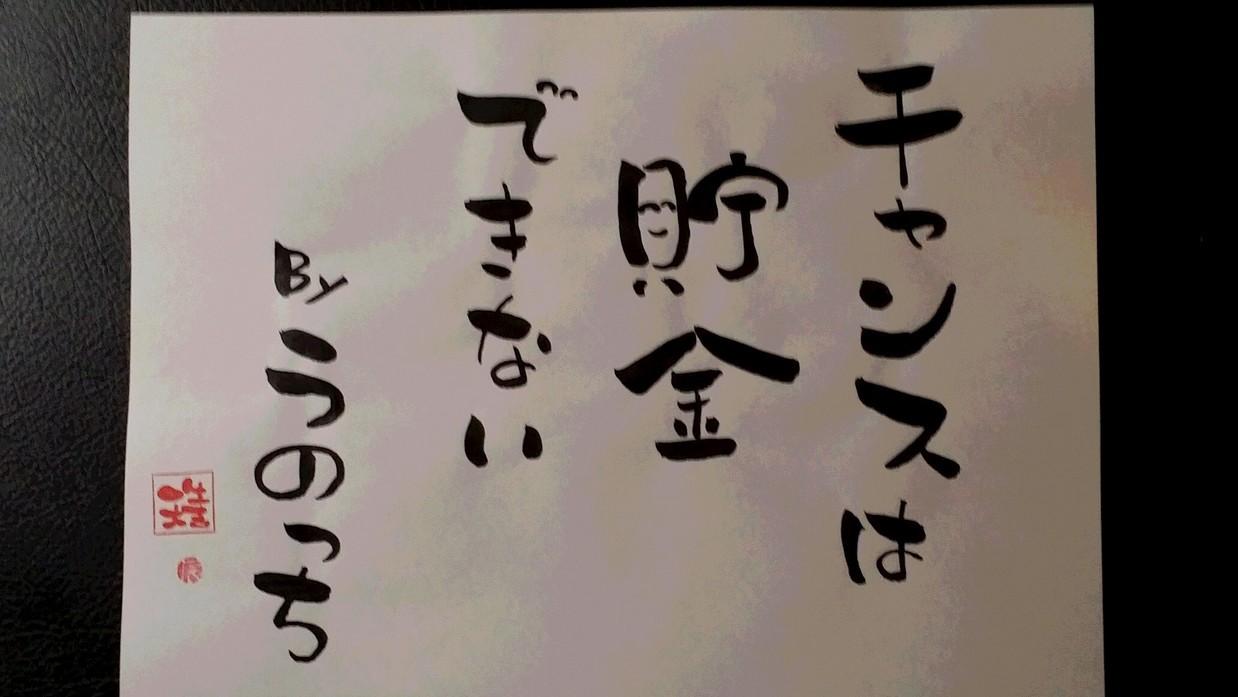 チャンスは
貯金
できない
Byうのっち